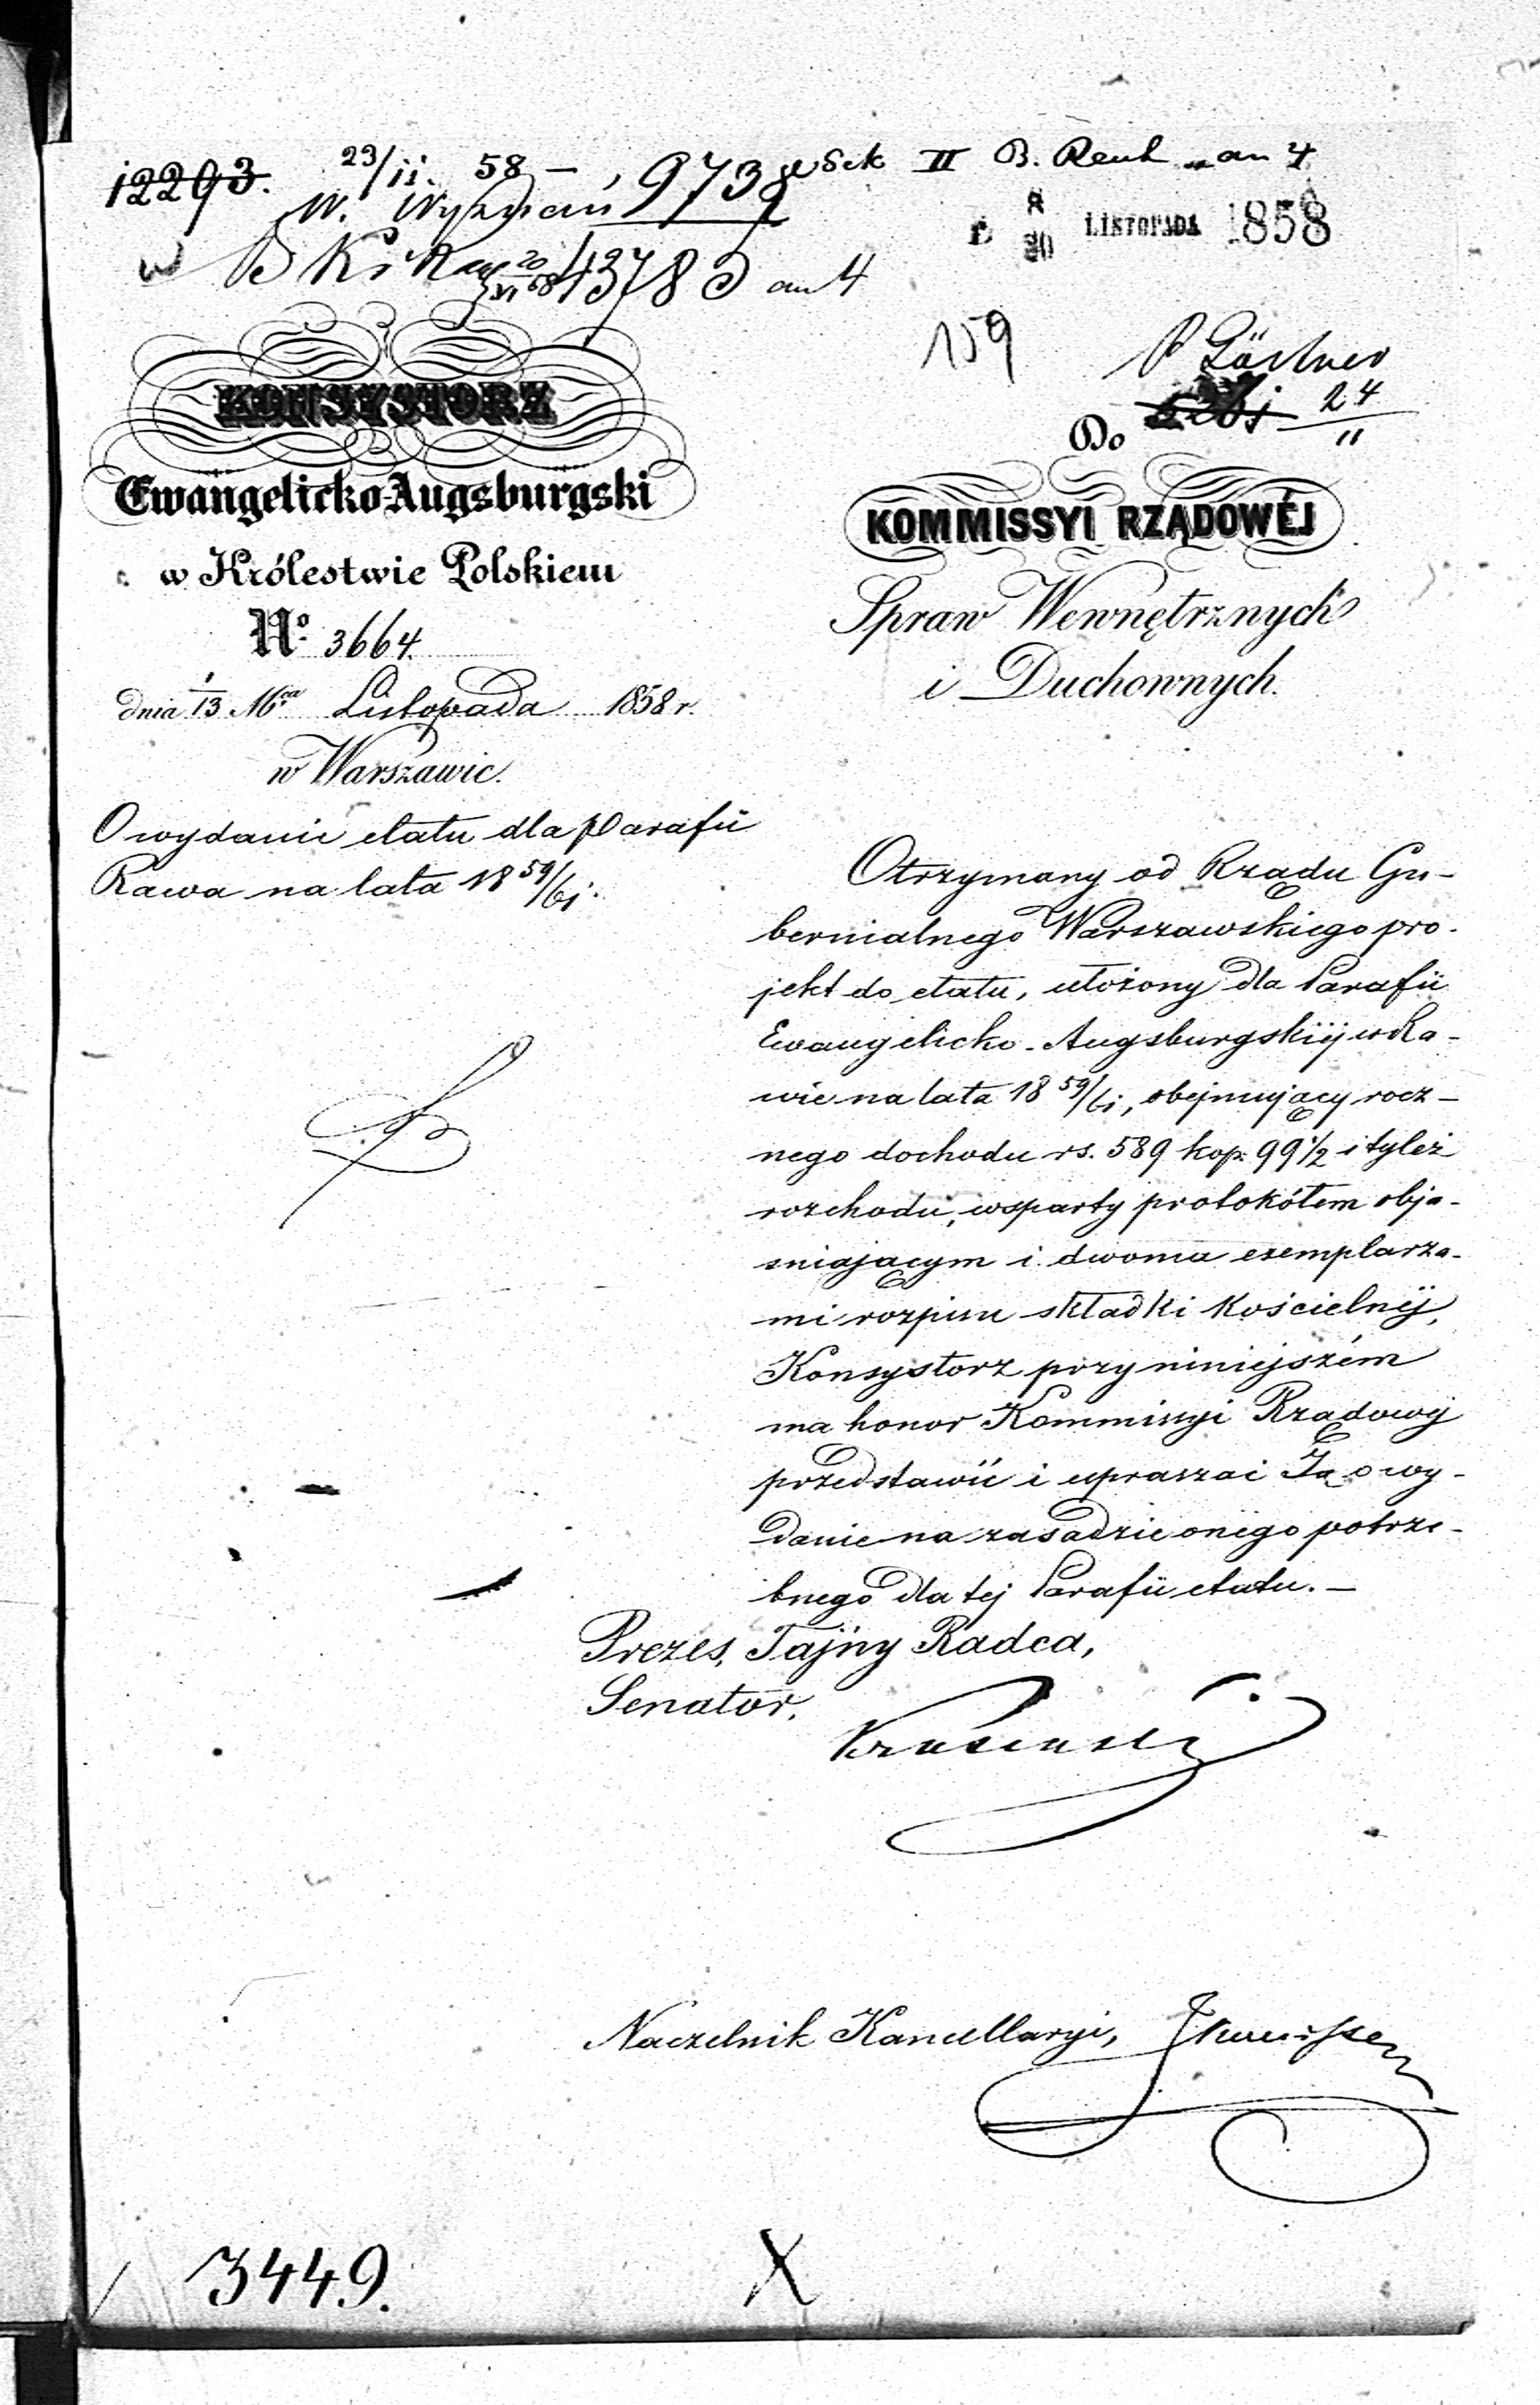 12293. 23/11. 58 — 9738 Sek II B. an 4
W. Wyznań
w B 20/XI 58 13783 an 4
D. 8/20 LISTOPADA 1858
159
P
24/11
KONSYSTORZ
Ewangelicko-Augsburgski
w Królestwie Polskiem
No. 3664.
dnia 1/13 Mca Listopada 1858 r.
w Warszawie.
O wydanie etatu dla Parafii
Rawa na lata 18 59/61.
Do
KOMMISSYI RZĄDOWÉJ
Spraw Wewnętrznych
i Duchownych.
Otrzymany od Rządu Gu-
bernialnego Warszawskiego pro-
jekt do etatu, ułożony dla Parafii
Ewangelicko-Augsburgskiéj w Ra-
wie na lata 18 59/61, obejmujący rocz-
nego dochodu rs. 589 kop. 99 1/2 i tyleż
rozchodu, wsparty protokółem obja-
sniającym i dwoma exemplarza-
mi rozpisu składki Kościelnéj,
Konsystorz przy niniejszém
ma honor Kommissyi Rządowéj
przedstawić i upraszać Ją o wy-
danie na zasadzie onego potrze-
bnego dla tej Parafii etatu. —
Prezes, Tajny Radca,
Senator,
Kruseustern
Naczelnik Kancellaryi,
3449.
X